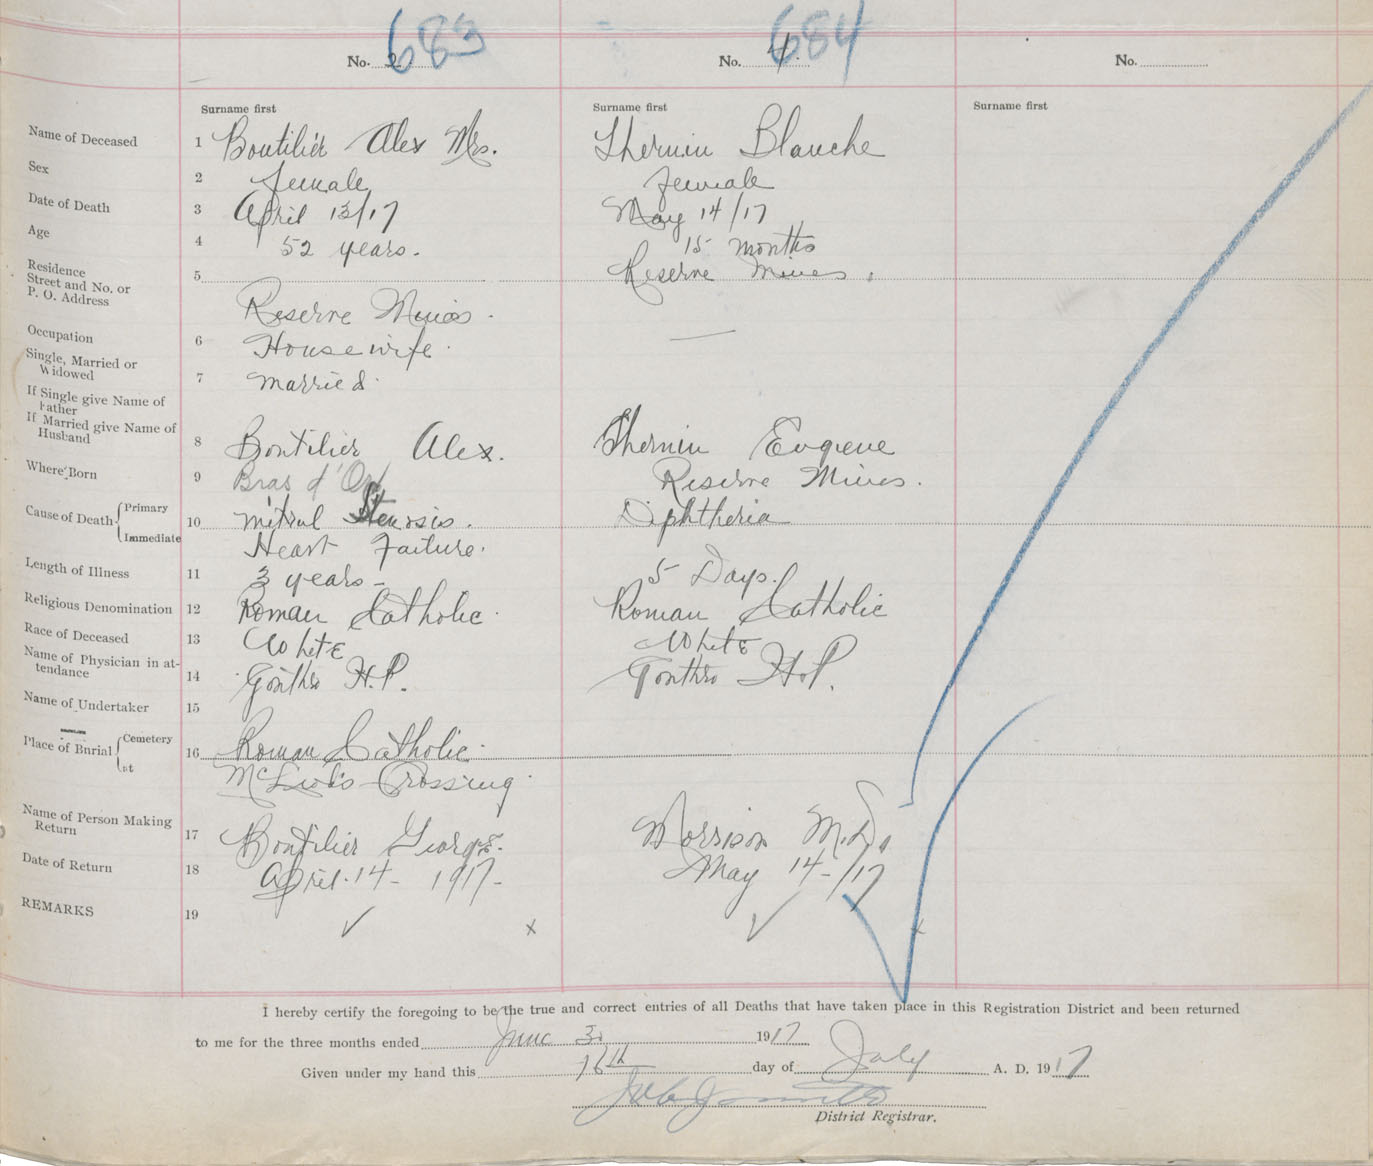 683
684
No. 3
No. 4
No.
Surname first
Surname first
Surname first
Name of Deceased 1 Boutilier Alex Mrs. Thernin Blanche
Sex 2 female female
Date of Death 3 April 13/17 May 14/17
Age 4 52 years. 15 months
Residence
Street and No. or
P. O. Address
5 Reserve Mines.
Reserve Mines.
Occupation 6 Housewife. —
Single, Married or
Widowed
7 Married.
If Single give Name of
Father
If Married give Name of
Husband
8 Boutilier Alex. Thernin Eugene
Where Born 9 Bras d'Or Reserve Mines.
Cause of Death { Primary
Immediate
10 Mitral Stenosis. Diphtheria
Heart Failure.
Length of Illness 11 3 years - 5 Days.
Religious Denomination 12 Roman Catholic. Roman Catholic
Race of Deceased 13 White White
Name of Physician in at-
tendance
14 Gonthro H.P. Gonthro H.P.
Name of Undertaker 15
Place of Burial { Cemetery
at
16 Roman Catholic.
Crossing.
Name of Person Making
Return
17 Boutilier George. Morrison M.D.
Date of Return 18 April. 14 - 1917 - May 14 - /17
REMARKS 19 ✓ x ✓ x
I hereby certify the foregoing to be the true and correct entries of all Deaths that have taken place in this Registration District and been returned
to me for the three months ended June 3 1917
Given under my hand this 16th day of July A. D. 1917
District Registrar.